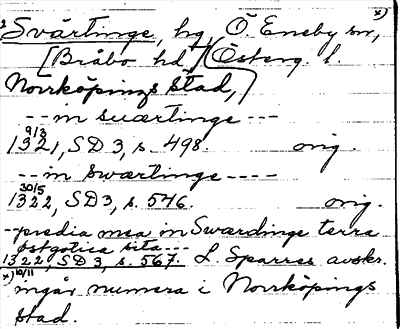 x)
2 Svärtinge, hg, Ö. Eneby sn,
[Bråbo hd] (Österg. l.
Norrköpings stad,)
-- in suærtinge ---
9/3
1321, SD 3, s. 498. orig.
-- in swærtinge ----
30/5
1322, SD 3, s. 546. orig.
-- predia mea in Swærdinge terra
ostgotica sita ---
1322, SD 3, s. 567. L. Sparres avskr.
10/11
x) ingår numera i Norrköpings
stad.